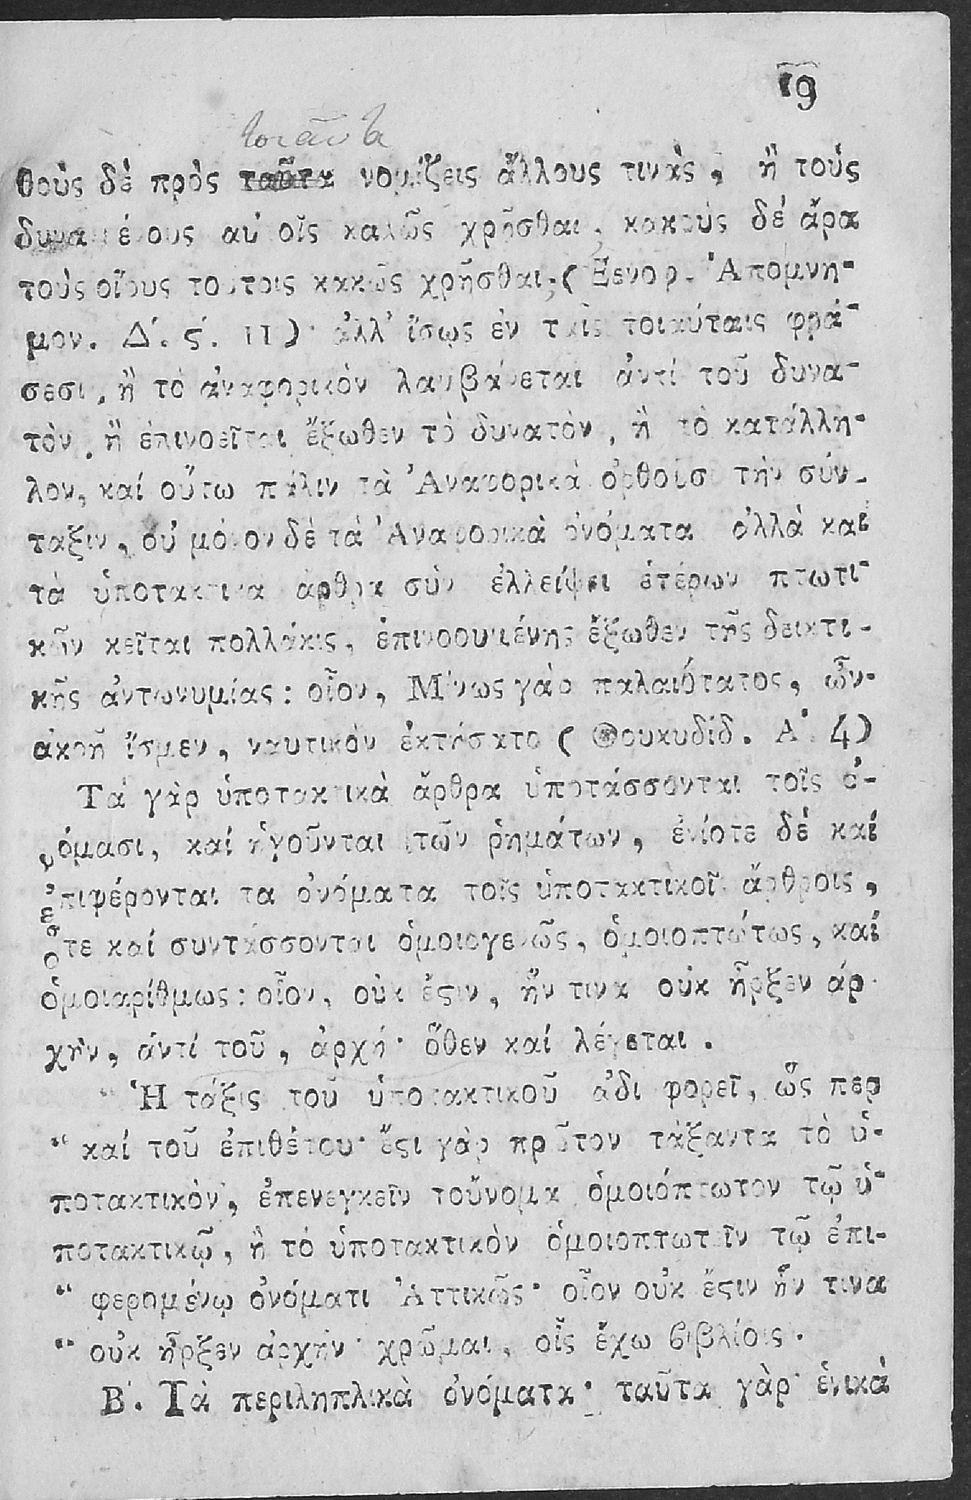 19
τοιαῦτα
θούς δέ πρός ταῦτα νομίζεις ἄλλους τινάς, ἤ τούς
δυναμένους αὐτοῖς καλῶς χρῆσθαι, κακούς δέ ἄρα
τούς οἵους τούτοις κακῶς χρῆσθαι; (Ξενοφ. Ἀπομνη-
μον. Δ΄. ϛ΄. 11)· ἀλλ᾽ ἴσως ἐν ταῖς τοιαύταις φρά-
σεσι, ἤ τό ἀναφορικόν λαμβάνεται ἀντί τοῦ δυνα-
τόν, ἤ ἐπινοεῖται ἔξωθεν τὸ δυνατὸν, ἤ τὸ κατάλλη-
λον, καί οὕτω πάλιν τὰ Ἀναφορικὰ ὀρθοῦσι τήν σύν-
ταξιν, οὐ μόνον δὲ τά Ἀναφορικὰ ὀνόματα ἀλλὰ καί
τὰ ὑποτακτικα ἄρθρα σύν ἐλλείψει ἑτέρων πτωτι-
κῶν κεῖται πολλάκις, ἐπινοουμένης ἔξωθεν τῆς δεικτι-
κῆς ἀντωνυμίας: οἷον, Μίνως γάρ παλαιότατος, ὧν-
ἀκοῇ ἴσμεν, ναυτικόν ἐκτήσατο (Θουκυδίδ. Α΄. 4)
Τά γὰρ ὑποτακτικὰ ἄρθρα ὑποτάσσονται τοῖς ὀ-
νόμασι, καί ἡγοῦνται τῶν ῥημάτων, ἐνίοτε δέ καί
ἐπιφέρονται τα ὀνόματα τοῖς ὑποτακτικοῖς ἄρθροις,
ὅτε καί συντάσσονται ὁμοιογενῶς, ὁμοιοπτώτως, καί
ὁμοιαρίθμως: οἷον, οὐκ ἔϛιν, ἥν τινα οὐκ ἦρξεν ἀρ-
χήν, ἀντί τοῦ, ἀρχή· ὅθεν καί λέγεται.
“ Ἡ τάξις τοῦ ὑποτακτικοῦ ἀδιφορεῖ, ὥς περ
“ καί τοῦ ἐπιθέτου· ἔϛι γάρ πρῶτον τάξαντα τὸ ὑ-
ποτακτικόν, ἐπενεγκεῖν τοὔνομα ὁμοιόπτωτον τῷ ὑ-
ποτακτικῷ, ἤ τό ὑποτακτικὸν ὁμοιοπτωτεῖν τῷ ἐπι-
“ φερομένῳ ὀνόματι Ἀττικῶς· οἷον οὐκ ἔϛιν ἥν τινα
“ οὐκ ἦρξεν ἀρχήν· χρῶμαι, οἷς ἔχω βιβλίοις.
Β΄. Τὰ περιληπλικὰ ὀνόματα· ταῦτα γάρ ἑνικά